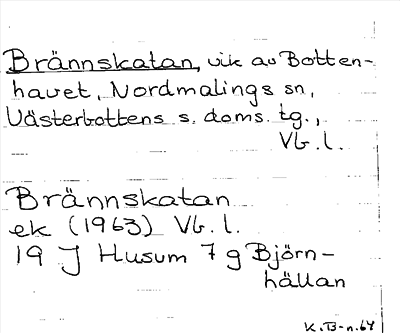 Brännskatan, vik av Botten-
havet, Nordmalings sn,
Västerbottens s. doms. tg.,
Vb. l.
Brännskatan
ek (1963) Vb. l.
19 J Husum 7 g Björn-
hällan
K.B-n.64